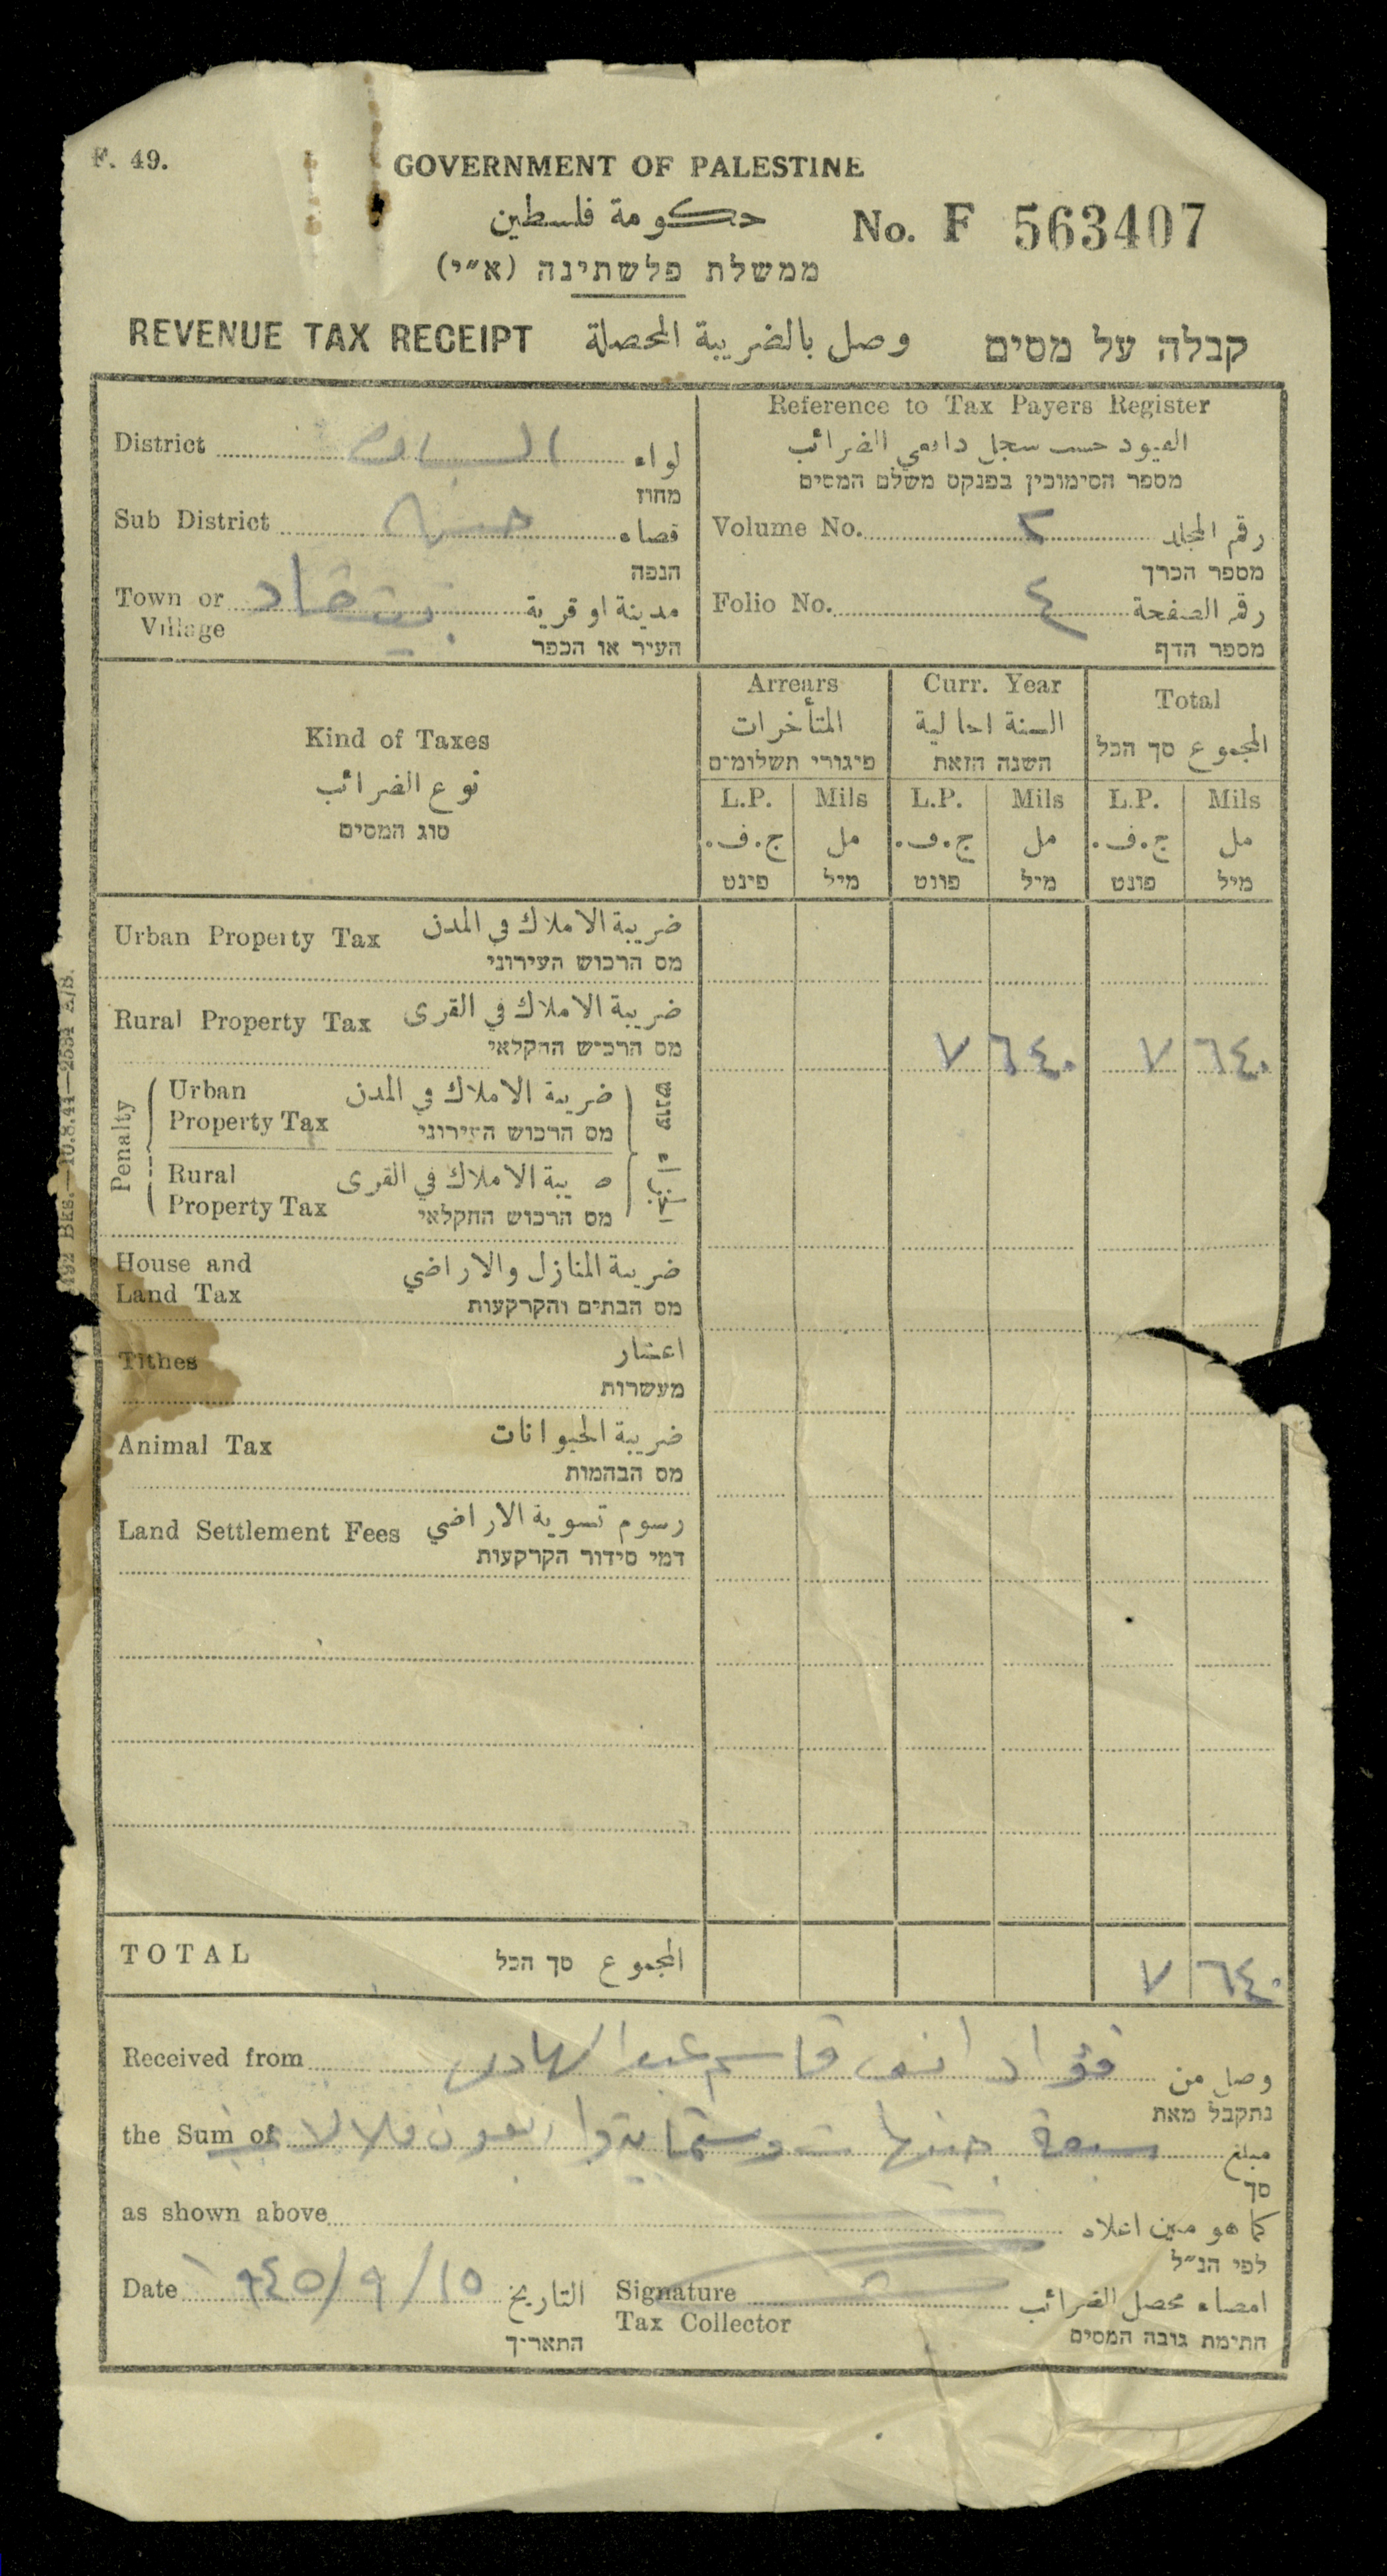 F. 49.
GOVERNMENT OF PALESTINE
حكومة فلسطين
No. F 563407
ממשלת פלשתינה (א״י)
REVENUE TAX RECEIPT وصل بالضريبة المحصلة קבלה על מסים
Reference to Tax Payers Register
القيود حسب سجل دافعي الضرائب
מספר הסימוכין בפנקס משלם המסים
District لواء
מחוז
Sub District قضاء
הנפה
Town or Village مدينة او قرية
העיר או הכפר
Volume No. ٢ رقم المجلد
מספר הכרך
Folio No. ٤ رقم الصفحة
מספר הדף
Kind of Taxes
نوع الضرائب
סוג המסים
Arrears
المتأخرات
פיגורי תשלומים
Curr. Year
السنة الحالية
השנה הזאת
Total
المجموع סך הכל
L.P. Mils L.P. Mils L.P. Mils
ج.ف. مل ج.ف. مل ج.ف. مل
פינט מיל פונט מיל פונט מיל
Urban Property Tax ضريبة الاملاك في المدن
מס הרכוש העירוני
Rural Property Tax ضريبة الاملاك في القرى
מס הרכוש החקלאי
٧ ٦٤٠ ٧ ٦٤٠
Penalty
Urban Property Tax ضريبة الاملاك في المدن
מס הרכוש העירוני
עונש
Rural Property Tax ضريبة الاملاك في القرى
מס הרכוש החקלאי
House and Land Tax ضريبة المنازل والاراضي
מס הבתים והקרקעות
Tithes اعشار
מעשרות
Animal Tax ضريبة الحيوانات
מס הבהמות
Land Settlement Fees رسوم تسوية الاراضي
דמי סידור הקרקעות
TOTAL المجموع סך הכל
٧ ٦٤٠
Received from فؤاد قاسم عبد الهادي وصل من
נתקבל מאת
the Sum of سبعة جنيهات وستماية واربعون ملا لا غير مبلغ
סך
as shown above كما هو مبين اعلاه
לפי הנ״ל
Date ١٥/٩/٩٤٥ التاريخ
התאריך
Signature Tax Collector امضاء محصل الضرائب
חתימת גובה המסים